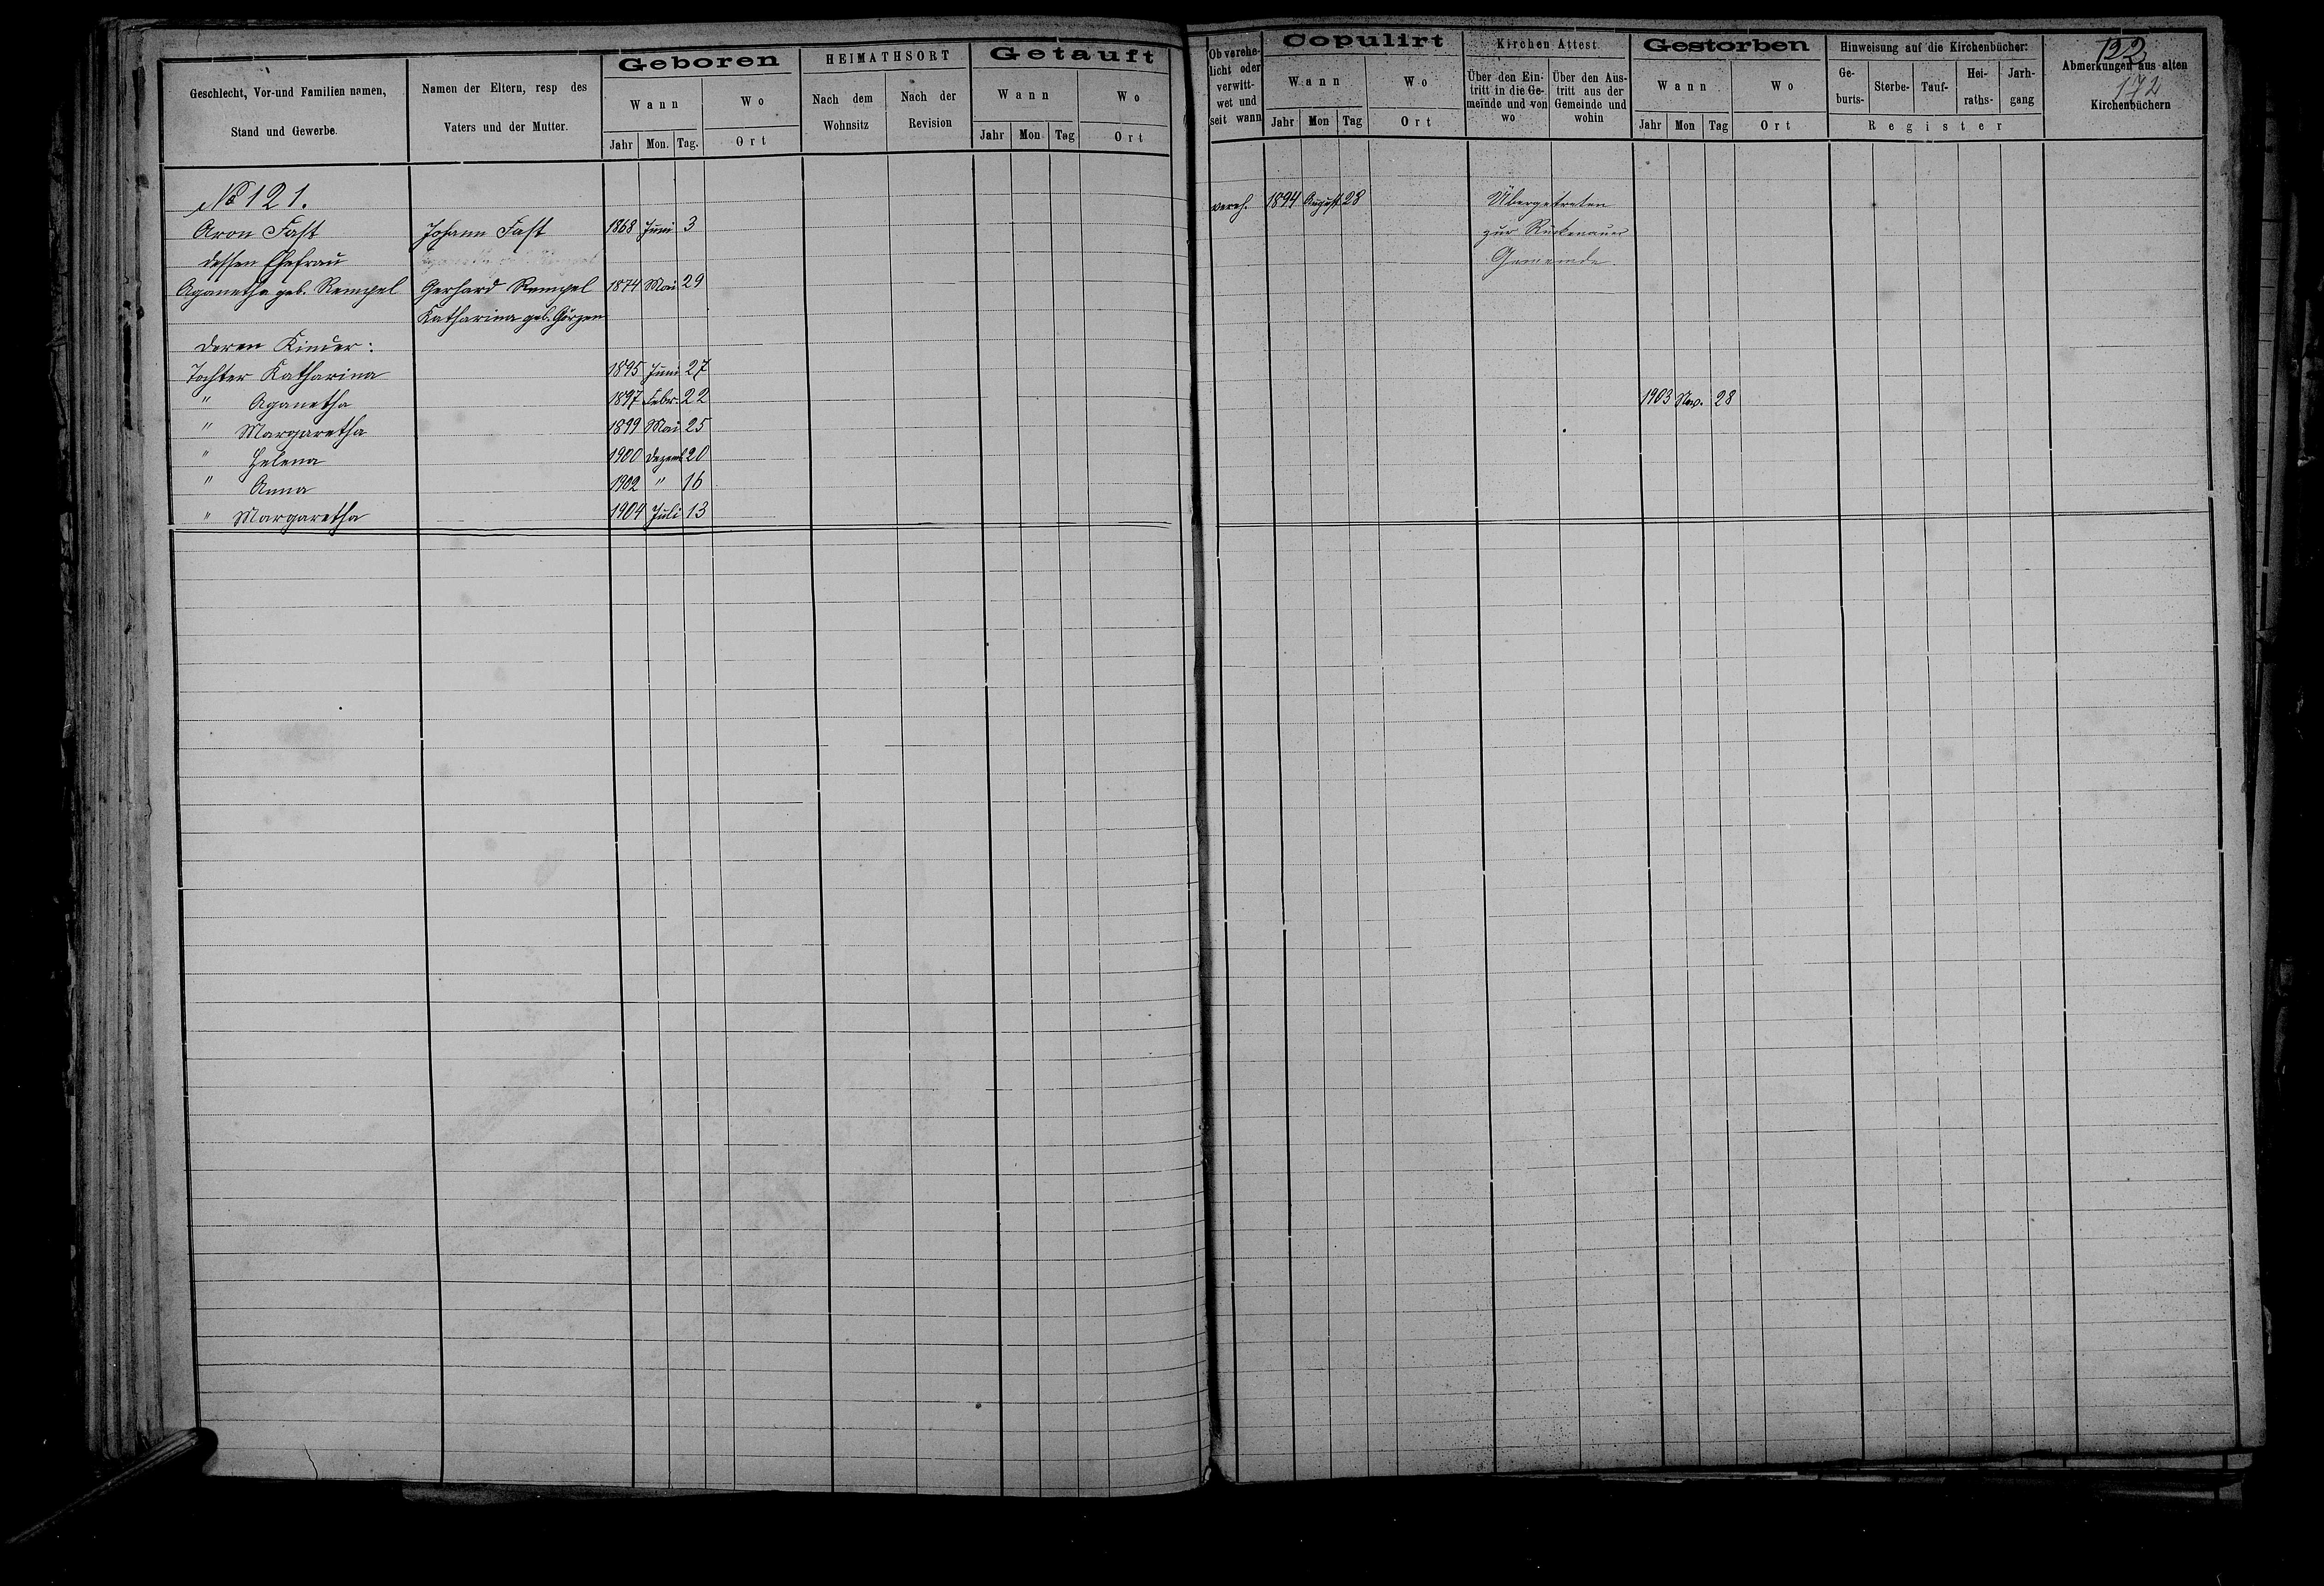 Geschlecht, Vor-und Familien namen,
Stand und Gewerbe.
Namen der Eltern, resp des
Vaters und der Mutter.
Geboren
Wann
Wo
Jahr Mon. Tag.
Ort
HEIMATHSORT
Nach dem
Wohnsitz
Nach der
Revision
Getauft
Wann
Wo
Jahr Mon Tag
Ort
Ob verehe-
licht oder
verwitt-
wet und
seit wann
Copulirt
Wann
Wo
Jahr Mon Tag
Ort
Kirchen Attest
Über den Ein-
tritt in die Ge-
meinde und von
wo
Über den Aus-
tritt aus der
Gemeinde und
wohin
Gestorben
Wann
Wo
Jahr Mon Tag
Ort
Hinweisung auf die Kirchenbücher:
Ge-
burts-
Sterbe-
Tauf-
Hei-
raths-
Jarh-
gang
Register
122
Abmerkungen aus alten
172
Kirchenbüchern
No 121.
vereh. 1894 August 28 Übergetreten
Aron Fast Johann Fast 1868 Juni 3 zur Rückenauer
dessen Ehefrau Gemeinde
Aganetha geb. Rempel Gerhard Rempel 1874 Mai 29
Katharina geb. Görzen
deren Kinder:
Tochter Katharina 1895 Juni 27
" Aganetha 1897 Febr. 22 1903 Nov. 28
" Margaretha 1899 Mai 25
" Helena 1900 Dezemb 20
" Anna 1902 " 16
" Margaretha 1904 Juli 13